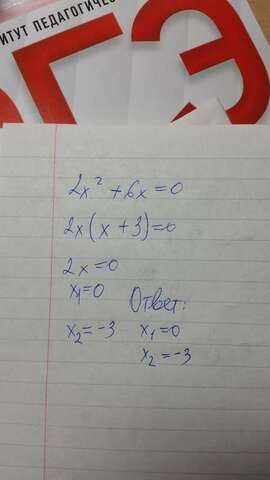 ИТУТ ПЕДАГОГИЧЕС
ОГЭ
2x² + 6x = 0
2x(x + 3) = 0
2x = 0
x₁ = 0
Ответ:
x₂ = -3
x₁ = 0
x₂ = -3